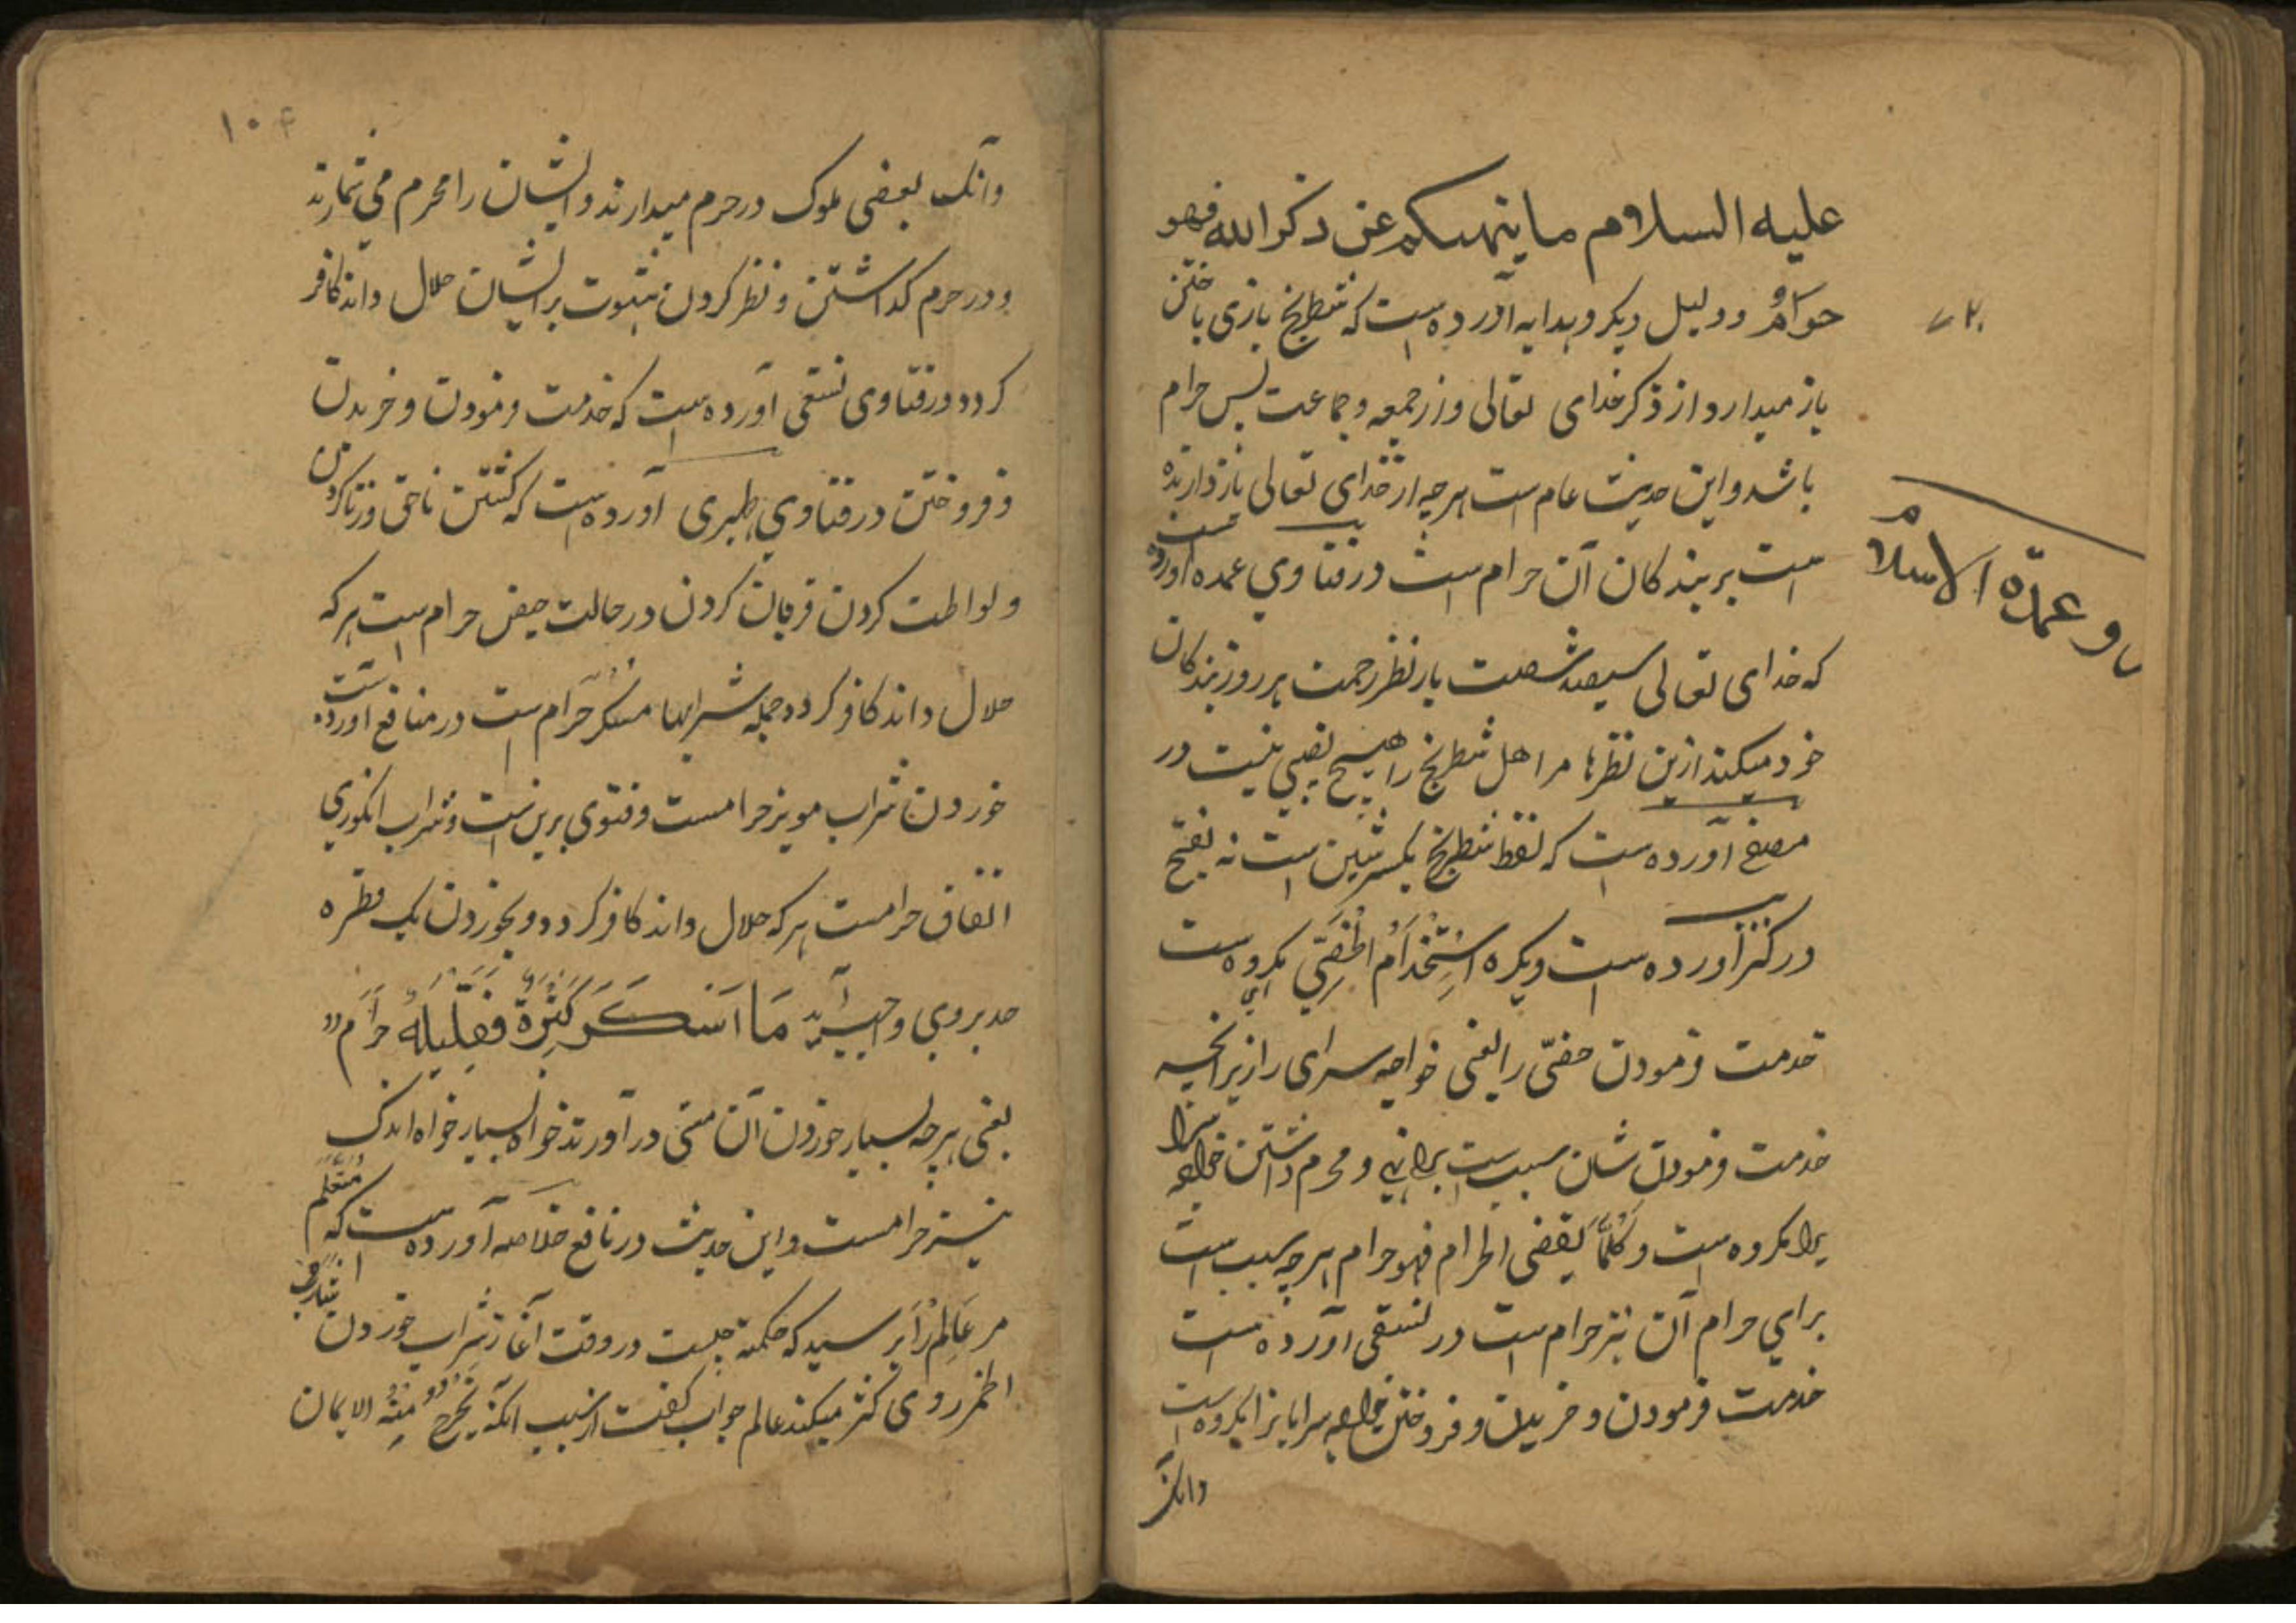 علیه السلام ما ینهیکم عن ذکر الله فهو
حرام و دلیل دیکر و هدایه آورده است که شطرنج بازی باختن
باز میدارد از ذکر خدای تعالی و از جمعه و جماعت پس حرام
باشد و این حدیث عام است هرچه از خدای تعالی باز دارنده
است بر بندکان آن حرام است در فتاوي عمده آورده است
که خدای تعالی سیصد شصت بار نظر رحمت هر روز بندکان
خود میکند ازین نظرها مر اهل شطرنج را هیچ نصیبی نیست در
آورده است که لفظ شطرنج بکسر شین است نه بفتح
در کنز آورده است ویکره استخدام الخصی مکروه است
خدمت فرمودن خصی را یعنی خواجه سرای را زیرانچه
خدمت فرمودن شان سبب است برای و محرم داشتن خواجه سرا
یرا مکروه است و کلما یفضی الحرام فهو حرام هرچه سبب است
برای حرام آن نیز حرام است در نسفی آورده است
خدمت فرمودن و خریدن و فروختن خواجه سرایانرا مکروه است
وانکه
و عمدة الاسلام
۱۰۴
وآنک بعضی ملوک در حرم میدارند و ایشان را محرم می شمارند
و در حرم کذاشتن و نظر کردن بشهوت بر ایشان حلال داند کافر
کردد و در فتاوی نسفی آورده است که خدمت فرمودن و خریدن
و فروختن در فتاوي ظهیری آورده است که کشتن ناحق و زنا کردن
و لواطت کردن قربان کردن در حالت حیض حرام است هرکه
حلال داند کافر کردد جمله شرابها مسکر حرام است در منافع آورده است
خوردن شراب مویز حرامست و فتوی برین است و شراب انکوري
اتفاق حرامست هرکه حلال داند کافر کردد و بخوردن یک قطره
حد بروي واجب آید ما اسکر کثیره فقلیله حرام
یعنی هرچه بسیار خوردن آن مستی در آورد خواه بسیار خواه اندک
نیز حرامست و این حدیث در نافع خلاصه آورده است که متعلم
مر عالم را پرسید که حکمة چیست در وقت آغاز شراب خوردن شارب
الخمر روی ترش میکند عالم جواب کفت از سبب آنکه یخرج منه الایمان